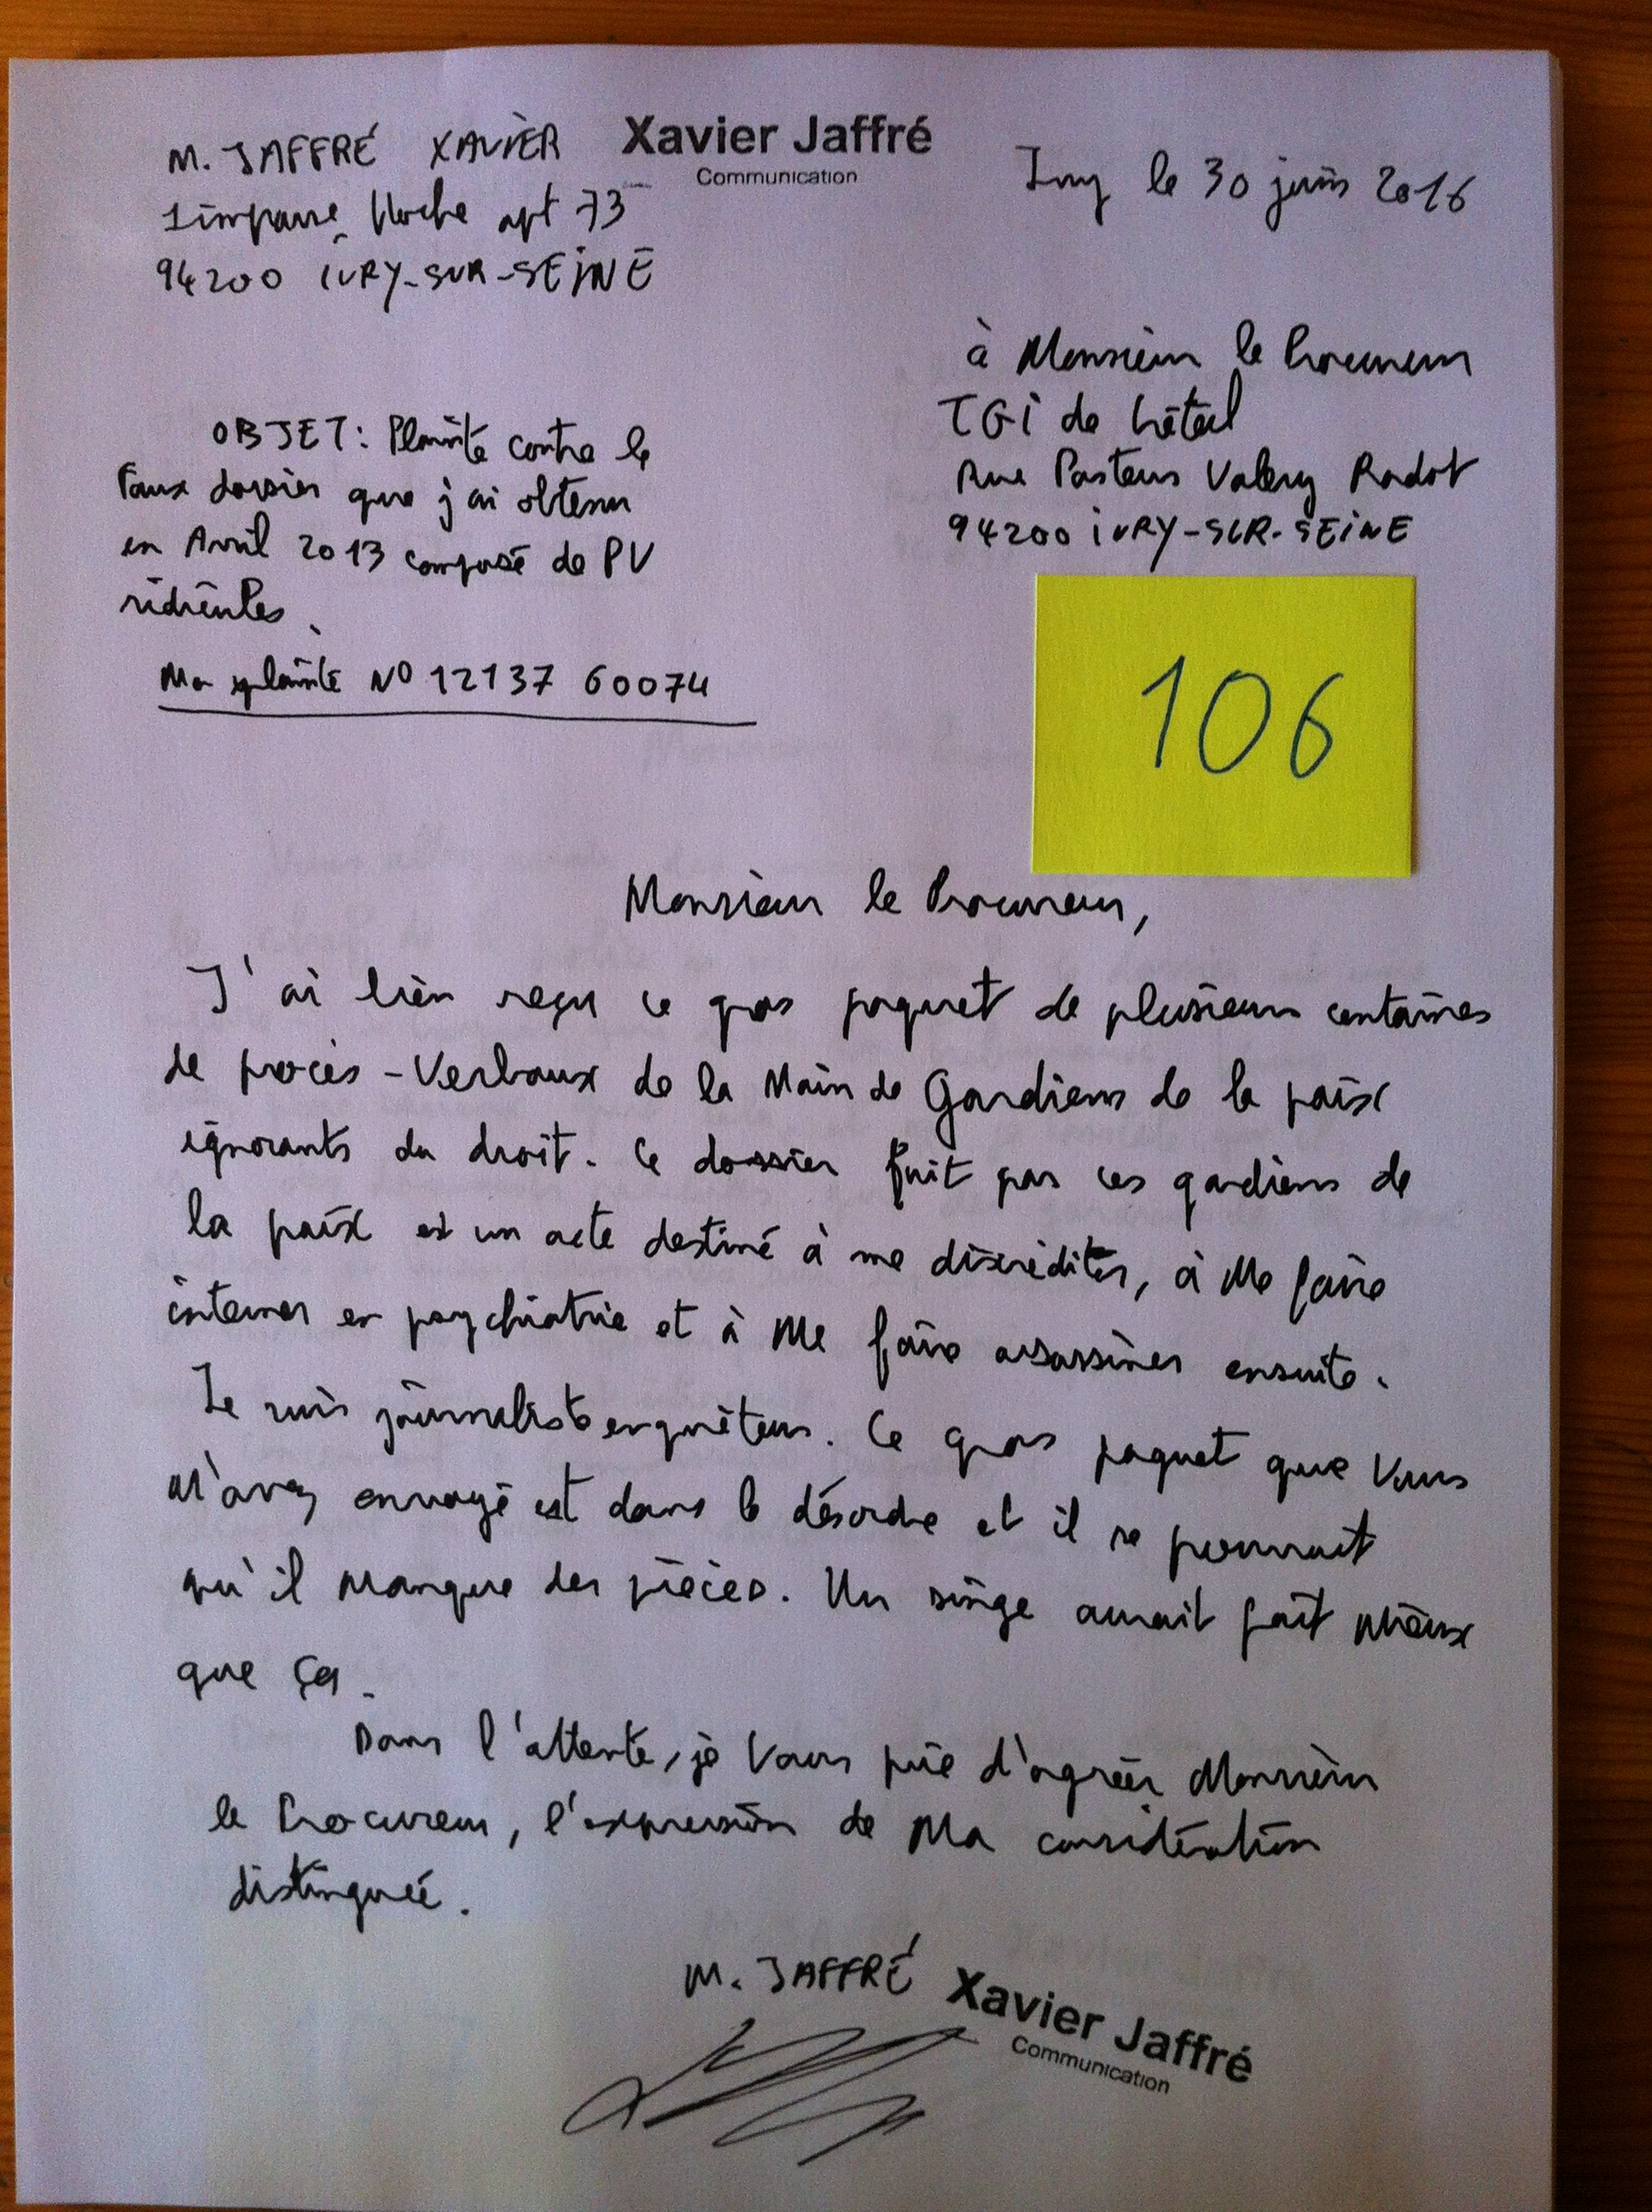 M. JAFFRÉ XAVIER
Xavier Jaffré
Communication
Ivry le 30 juin 2016
1 impasse Hoche apt 73
94200 IVRY-SUR-SEINE
à Monsieur le Procureur
TGI de Créteil
Rue Pasteur Valery Radot
94200 IVRY-SUR-SEINE
OBJET: Plainte contre le
faux dossier que j'ai obtenu
en Avril 2013 composé de PV
ridicules.
Ma plainte N° 12137 60074
106
Monsieur le Procureur,
J'ai bien reçu ce gros paquet de plusieurs centaines
de procès-Verbaux de la Main de Gardiens de la paix
ignorants du droit. Ce dossier fait par ces gardiens de
la paix est un acte destiné à me discréditer, à Me faire
interner en psychiatrie et à Me faire assassiner ensuite.
Je suis journaliste enquêteur. Ce gros paquet que Vous
M'avez envoyé est dans le désordre et il se pourrait
qu'il manque des pièces. Un singe aurait fait Mieux
que ça.
Dans l'attente, je Vous prie d'agréer Monsieur
le Procureur, l'expression de Ma considération
distinguée.
M. JAFFRÉ
Xavier Jaffré
Communication